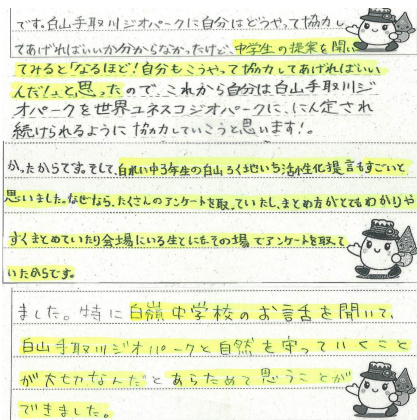 です。白山手取川ジオパークに自分はどうやって協力し
てあげればいいか分からなかったけど、中学生の提案を聞い
てみると「なるほど!自分もこうやって協力してあげればいい
んだ!」と思ったので、これから自分は白山手取川ジ
オパークを世界ユネスコジオパークに、にん定され
続けられるように協力していこうと思います!。
かったからです。そして、白れい中3年生の白山ろく地いち活性化提言もすごいと
思いました。なぜなら、たくさんのアンケートを取っていたし、まとめ方がとてもわかりや
すくまとめていたり会場にいる生とにもその場でアンケートを取って
いたからです。
ました。特に白嶺中学校のお話を聞いて、
白山手取川ジオパークと自然を守っていくこと
が大切なんだとあらためて思うことが
できました。